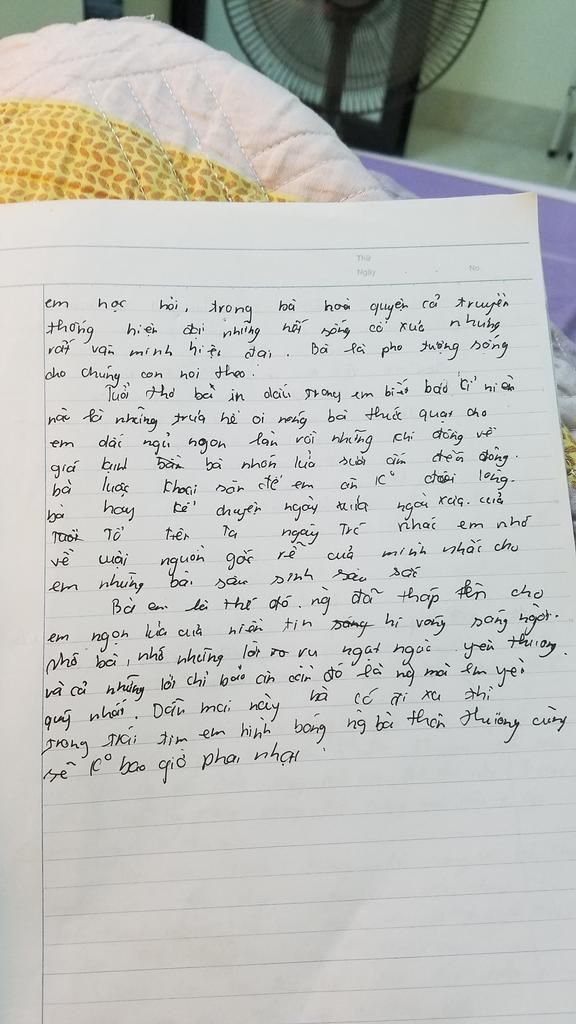 Thứ
Ngày . . No.
em học hỏi, trong bà hoà quyện cả truyền
thống hiện đại những nết sống cổ xưa nhưng
rất văn minh hiện đại. Bà là pho tượng sống
cho chúng con noi theo.
Tuổi thơ bà in dấu trong em biết bao kỉ niệm
nào là những trưa hè oi nóng bà thức quạt cho
em giấc ngủ ngon lành rồi những khi đông về
giá lạnh bà nhón lửa sưởi ấm đến đông.
bà luộc khoai sắn để em ăn K° đói lòng.
bà hay kể chuyện ngày xửa ngày xưa. của
Tổ tiên ta ngày trc nhắc em nhớ
về cuội nguồn gốc rễ của mình nhắc cho
em những bài sâu sắc
Bà em là thế đó. ng đã thắp lên cho
em ngọn lửa của niềm tin hi vọng sáng ngời.
Nhờ bà, nhờ những lời ru ngọt ngào yêu thương
và cả những lời chỉ bảo ân cần đó là ng mà em yêu
quý nhất. Dẫu mai này bà có đi xa thì
trong trái tim em hình bóng ng bà thân thương cũng
sẽ K° bao giờ phai nhạt.